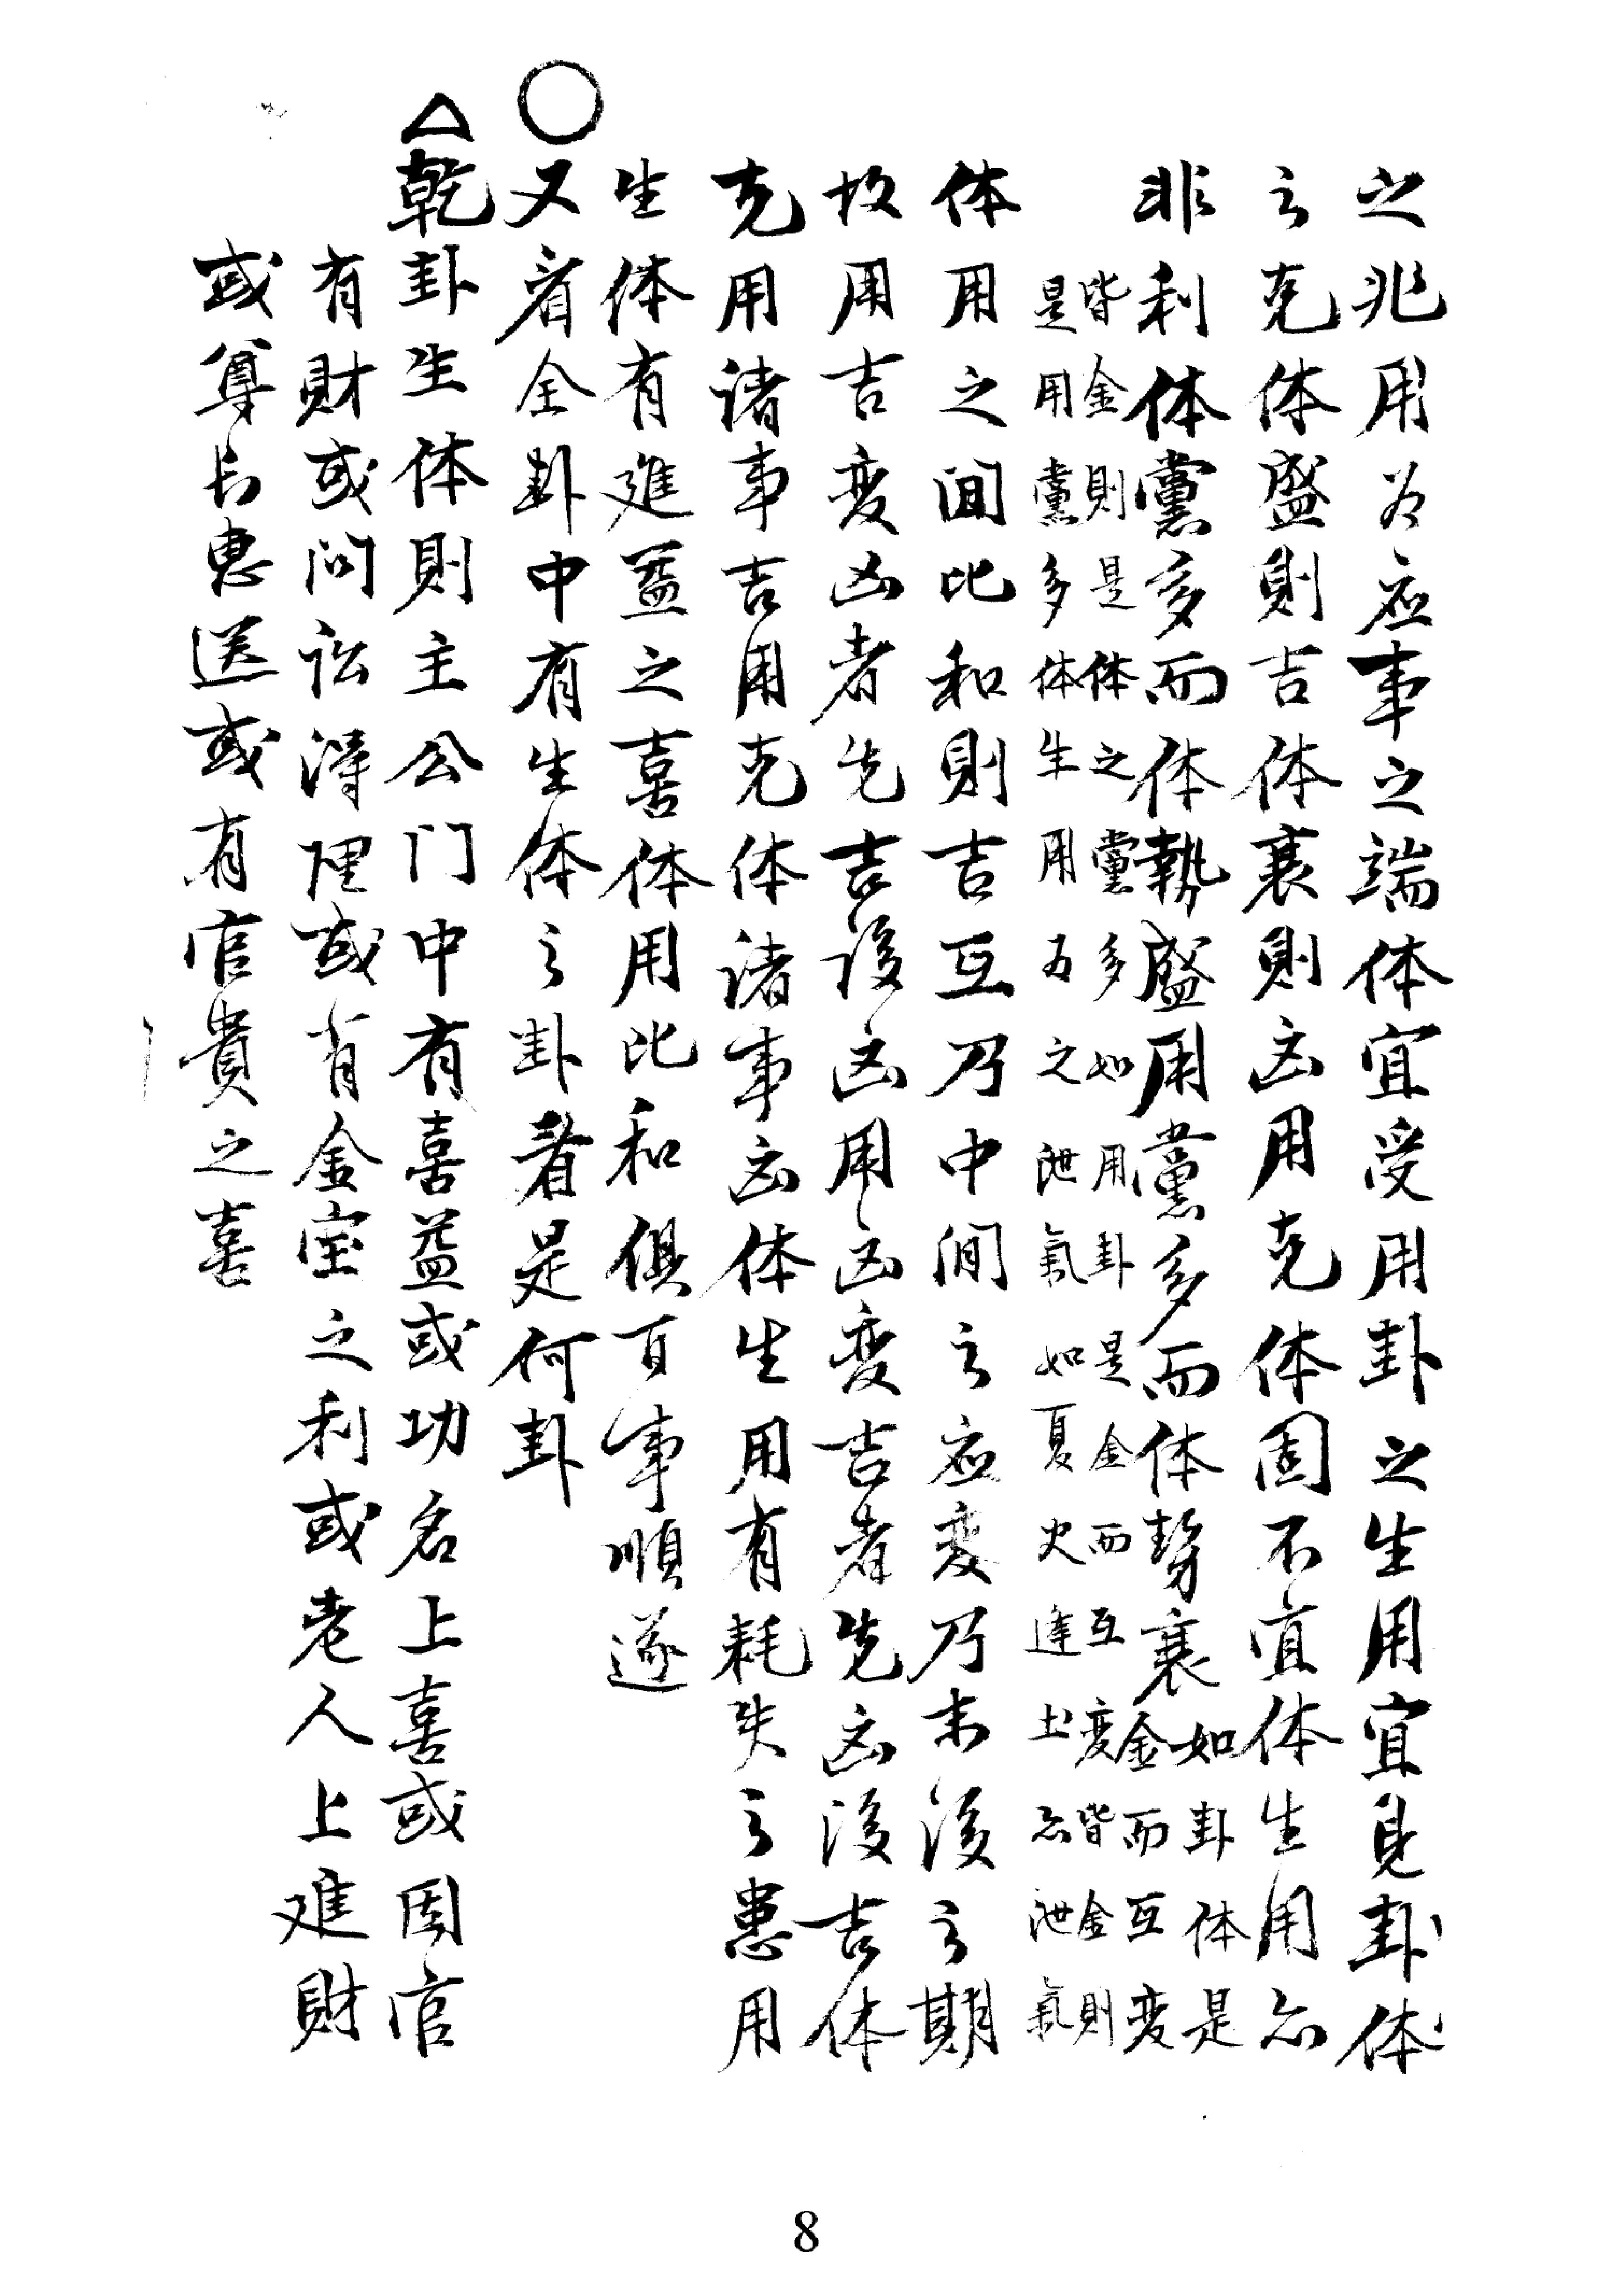 之兆用为应事之端体宜受用卦之生用宜見卦体
之克体盛則吉体衰則凶用克体固不宜体生用亦
非利体黨多而体勢盛用黨多而体勢衰如卦体是
金而互变
皆金則是体之黨多如用卦是金而互变皆金則
是用黨多体生用为之泄氣如夏火逢土亦泄氣
体用之间比和則吉互乃中间之应变乃末後之期
故用吉变凶者先吉後凶用凶变吉者先凶後吉体
克用诸事吉用克体诸事凶体生用有耗失之患用
生体有進益之喜体用比和俱百事順遂
○又看全卦中有生体之卦者是何卦
△乾卦生体則主公门中有喜益或功名上喜或因官
有財或问讼得理或有金宝之利或老人上進財
或尊長惠送或有官貴之喜
8